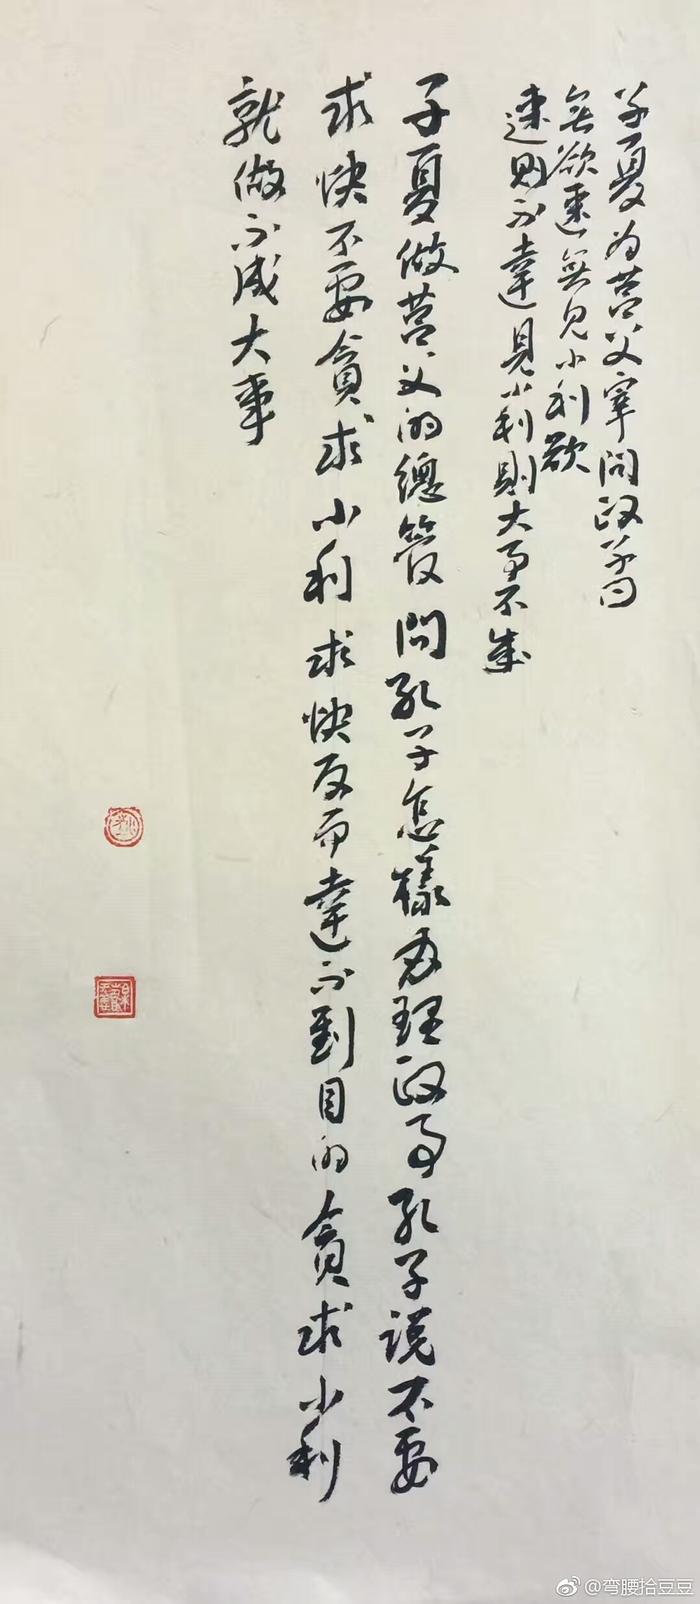 子夏为莒父宰问政篇子曰
無欲速無見小利欲
速则不達見小利則大事不成
子夏做莒父的總管問孔子怎樣办理政事孔子说不要
求快不要貪求小利求快反而達不到目的貪求小利
就做不成大事
@弯腰拾豆豆